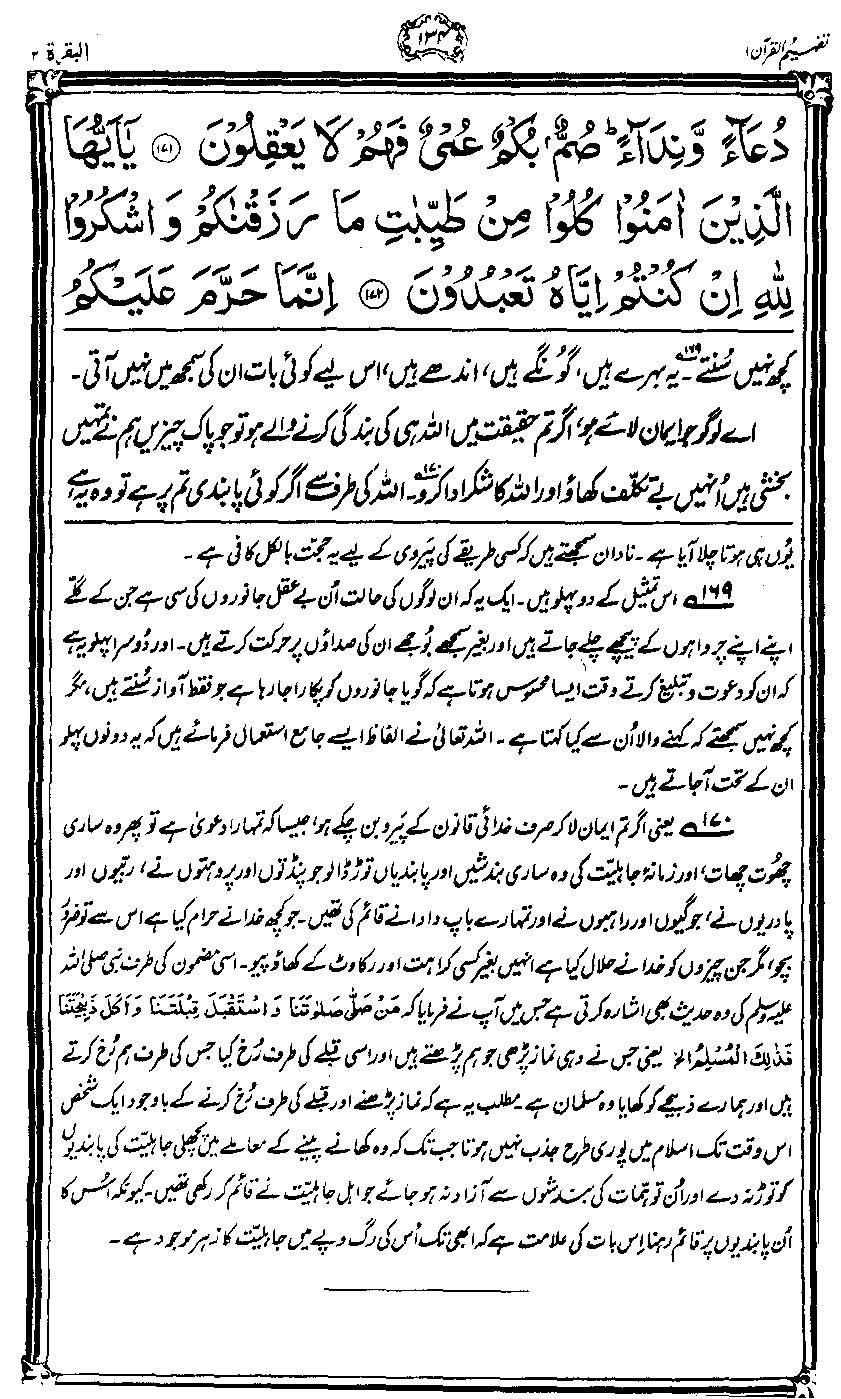 تفہیم القرآن ۱
۱۳۴
البقرة ۲
دُعَآءً وَّنِدَآءً ؕ صُمٌّۢ بُكْمٌ عُمْیٌ فَهُمْ لَا یَعْقِلُوْنَ ﴿۱۷۱﴾ یٰۤاَیُّهَا
الَّذِیْنَ اٰمَنُوْا كُلُوْا مِنْ طَیِّبٰتِ مَا رَزَقْنٰكُمْ وَاشْكُرُوْا
لِلّٰهِ اِنْ كُنْتُمْ اِیَّاهُ تَعْبُدُوْنَ ﴿۱۷۲﴾ اِنَّمَا حَرَّمَ عَلَیْكُمُ
کچھ نہیں سُنتے۔۱۶۹ یہ بہرے ہیں، گونگے ہیں، اندھے ہیں، اس لیے کوئی بات ان کی سمجھ میں نہیں آتی۔
اے لوگو جو ایمان لائے ہو، اگر تم حقیقت میں اللہ ہی کی بندگی کرنے والے ہو تو جو پاک چیزیں ہم نے تمہیں
بخشی ہیں اُنہیں بے تکلّف کھاؤ اور اللہ کا شکر ادا کرو۔۱۷۰ اللہ کی طرف سے اگر کوئی پابندی تم پر ہے تو وہ یہ ہے
یُوں ہی ہوتا چلا آیا ہے۔ نادان سمجھتے ہیں کہ کسی طریقے کی پیروی کے لیے یہ حجّت بالکل کافی ہے۔
۱۶۹ اس تمثیل کے دو پہلو ہیں۔ ایک یہ کہ ان لوگوں کی حالت اُن بے عقل جانوروں کی سی ہے جن کے گلّے
اپنے اپنے چرواہوں کے پیچھے چلے جاتے ہیں اور بغیر سمجھے بُوجھے ان کی صداؤں پر حرکت کرتے ہیں۔ اور دُوسرا پہلو یہ ہے
کہ ان کو دعوت و تبلیغ کرتے وقت ایسا محسُوس ہوتا ہے کہ گویا جانوروں کو پکارا جا رہا ہے جو فقط آواز سُنتے ہیں، مگر
کچھ نہیں سمجھتے کہ کہنے والا اُن سے کیا کہتا ہے۔ اللہ تعالیٰ نے الفاظ ایسے جامع استعمال فرمائے ہیں کہ یہ دونوں پہلو
ان کے تحت آجاتے ہیں۔
۱۷۰ یعنی اگر تم ایمان لا کر صرف خدائی قانون کے پَیرو بن چکے ہو، جیسا کہ تمہارا دعویٰ ہے تو پھر وہ ساری
چھُوت چھات، اور زمانۂ جاہلیّت کی وہ ساری بندشیں اور پابندیاں توڑ ڈالو جو پنڈتوں اور پروہتوں نے، ربّیوں اور
پادریوں نے، جوگیوں اور راہبوں نے اور تمہارے باپ دادا نے قائم کی تھیں۔ جو کچھ خدا نے حرام کیا ہے اس سے تو ضرور
بچو، مگر جن چیزوں کو خدا نے حلال کیا ہے انہیں بغیر کسی کراہت اور رکاوٹ کے کھاؤ پیو۔ اسی مضمون کی طرف نبی صلی اللہ
علیہ وسلم کی وہ حدیث بھی اشارہ کرتی ہے جس میں آپ نے فرمایا کہ مَنْ صَلّٰی صَلٰوتَنَا وَاسْتَقْبَلَ قِبْلَتَنَا وَاَكَلَ ذَبِیْحَتَنَا
فَذٰلِكَ الْمُسْلِمُ الخ یعنی جس نے وہی نماز پڑھی جو ہم پڑھتے ہیں اور اسی قبلے کی طرف رُخ کیا جس کی طرف ہم رُخ کرتے
ہیں اور ہمارے ذبیحے کو کھایا وہ مسلمان ہے۔ مطلب یہ ہے کہ نماز پڑھنے اور قبلے کی طرف رُخ کرنے کے باوجود ایک شخص
اس وقت تک اسلام میں پوری طرح جذب نہیں ہوتا جب تک کہ وہ کھانے پینے کے معاملے میں پچھلی جاہلیّت کی پابندیوں
کو توڑ نہ دے اور اُن توہّمات کی بندشوں سے آزاد نہ ہو جائے جو اہلِ جاہلیّت نے قائم کر رکھی تھیں۔ کیونکہ اُس کا
اُن پابندیوں پر قائم رہنا اِس بات کی علامت ہے کہ ابھی تک اُس کی رگ و پے میں جاہلیّت کا زہر موجود ہے۔